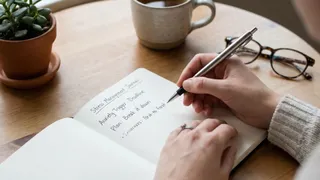 Stress Management Journal
Anxiety Trigger: Deadline
Plan: Break it down